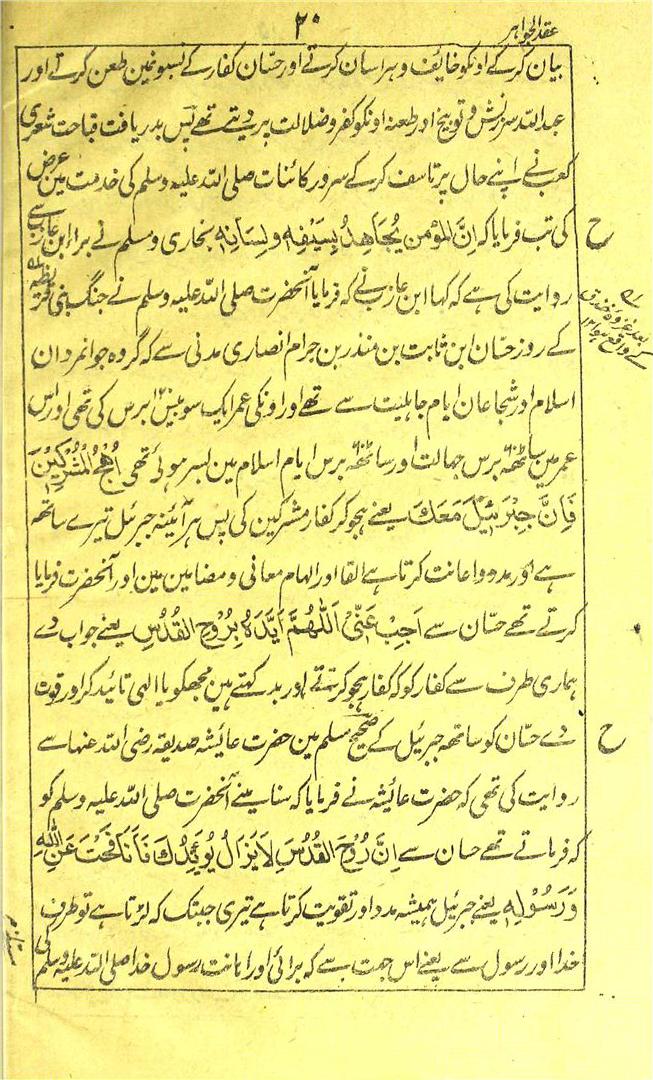 عقد الجواہر
۲۰
بیان کر کے اونکو خایف و ہراسان کرتے اور حسّان کفار کے نسبو نمین طعن کرتے اور
عبد اللہ سرزنش و توبیخ اور طعنہ اونکو کفر و ضلالت پر دیتے تھے پس بدریافت قباحت شعری
کعب نے اپنے حال پر تاسف کر کے سرور کائنات صلی اللہ علیہ وسلم کی خدمت مین عرض
کی تب فرمایا کہ اِنَّ المؤمن یُجَاھِدُ بِسَیْفِہٖ و لِسَانِہٖ بخاری و مسلم نے براء ابن عازب سے
ح
روایت کی ہے کہ کہا ابن عازب نے کہ فرمایا آنحضرت صلی اللہ علیہ وسلم نے جنگ بنی قریظہ
بعد غزوہ خندق
کے واقع ہوا ۱۲
کے روز حسّان ابن ثابت بن منذر بن حرام انصاری مدنی سے کہ گروہ جوانمردان
اسلام اور شجاعان ایام جاہلیت سے تھے اور اونکی عمر ایک سو بیس ۱۲۰ برس کی تھی اور اس
عمر مین ساٹھ ۶۰ برس جہالت اور ساٹھ ۶۰ برس ایام اسلام مین بسر ہوئی تھی اُھْجُ الْمُشْرِکِیْنَ
فَاِنَّ جِبْرَئِیْلَ مَعَكَ یعنے ہجو کر کفار مشرکین کی پس ہر آئینہ جبرئیل تیرے ساتھ
ہے اور مدد و اعانت کرتا ہے القا اور الہام معانی و مضامین مین اور آنحضرت فرمایا
کرتے تھے حسّان سے اَجِبْ عَنِّیْ اَللّٰھُمَّ اَیِّدْہُ بِرُوْحِ القُدُسِ یعنے جواب دے
ہماری طرف سے کفار کو کہ کفار ہجو کرتے اور بد کہتے ہین مجھکو یا الٰہی تائید کر اور قوت
دے حسّان کو ساتھ جبرئیل کے صحیح مسلم مین حضرت عائیشہ صدیقہ رضی اللہ عنہا سے
ح
روایت کی تھی کہ حضرت عائیشہ نے فرمایا کہ سنا مینے آنحضرت صلی اللہ علیہ وسلم کو
کہ فرماتے تھے حسان سے اِنَّ رُوْحَ القُدُسِ لَا یَزَالُ یُوَیِّدُكَ مَا نَافَحْتَ عَنِ اللّٰہِ
وَ رَسُوْلِہٖ یعنے جبرئیل ہمیشہ مدد اور تقویت کرتا ہے تیری جبتک کہ لڑتا ہے تو طرف
خدا اور رسول سے یعنے اس جہت سے کہ برائی اور اہانت رسول خدا صلی اللہ علیہ وسلم کی